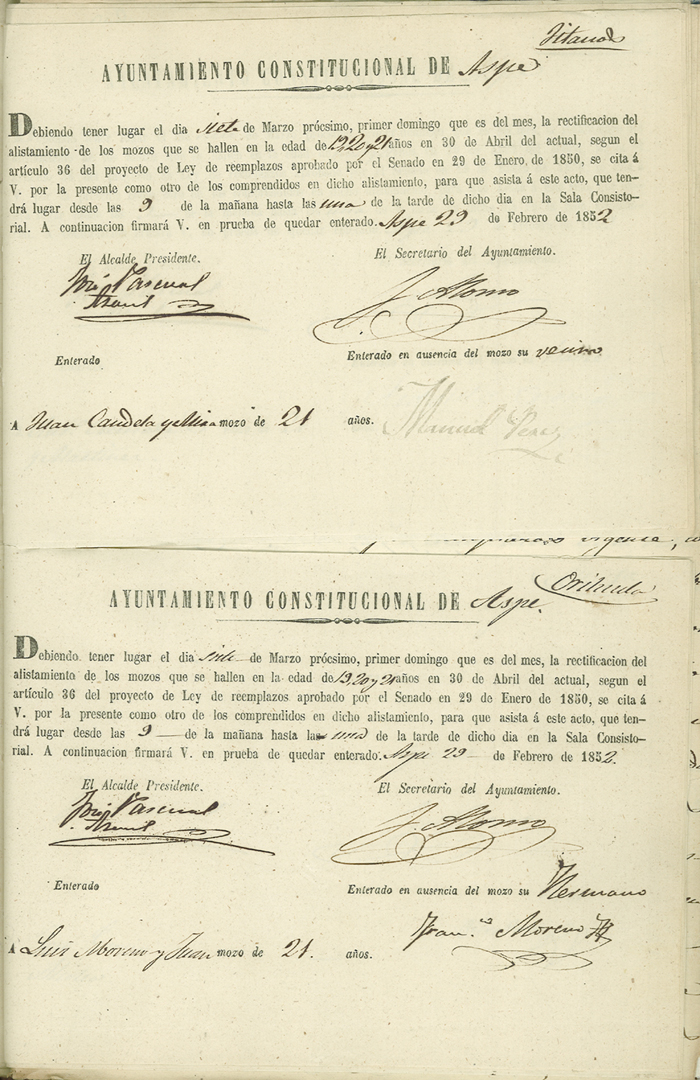 AYUNTAMIENTO CONSTITUCIONAL DE Aspe
Debiendo tener lugar el dia siete de Marzo prócsimo, primer domingo que es del mes, la rectificacion del
alistamiento de los mozos que se hallen en la edad de 19 20 y 21 años en 30 de Abril del actual, segun el
artículo 36 del proyecto de Ley de reemplazos aprobado por el Senado en 29 de Enero de 1850, se cita á
V. por la presente como otro de los comprendidos en dicho alistamiento, para que asista á este acto, que ten-
drá lugar desde las 9 de la mañana hasta las una de la tarde de dicho dia en la Sala Consisto-
rial. A continuacion firmará V. en prueba de quedar enterado. Aspe 29 de Febrero de 1852
El Alcalde Presidente. El Secretario del Ayuntamiento.
José Pascual J. Alonso
Enterado Enterado en ausencia del mozo su vecino
A Juan Candela y Mira mozo de 21 años. Manuel Perez
vigente,
Orihuela
AYUNTAMIENTO CONSTITUCIONAL DE Aspe.
Debiendo tener lugar el dia siete de Marzo prócsimo, primer domingo que es del mes, la rectificacion del
alistamiento de los mozos que se hallen en la edad de 19 20 y 21 años en 30 de Abril del actual, segun el
artículo 36 del proyecto de Ley de reemplazos aprobado por el Senado en 29 de Enero de 1850, se cita á
V. por la presente como otro de los comprendidos en dicho alistamiento, para que asista á este acto, que ten-
drá lugar desde las 9 de la mañana hasta las una de la tarde de dicho dia en la Sala Consisto-
rial. A continuacion firmará V. en prueba de quedar enterado. Aspe 29 de Febrero de 1852.
El Alcalde Presidente. El Secretario del Ayuntamiento.
José Pascual J. Alonso
Enterado Enterado en ausencia del mozo su Hermano
Fran.co Moreno
A Luis Moreno y Juan mozo de 21. años.